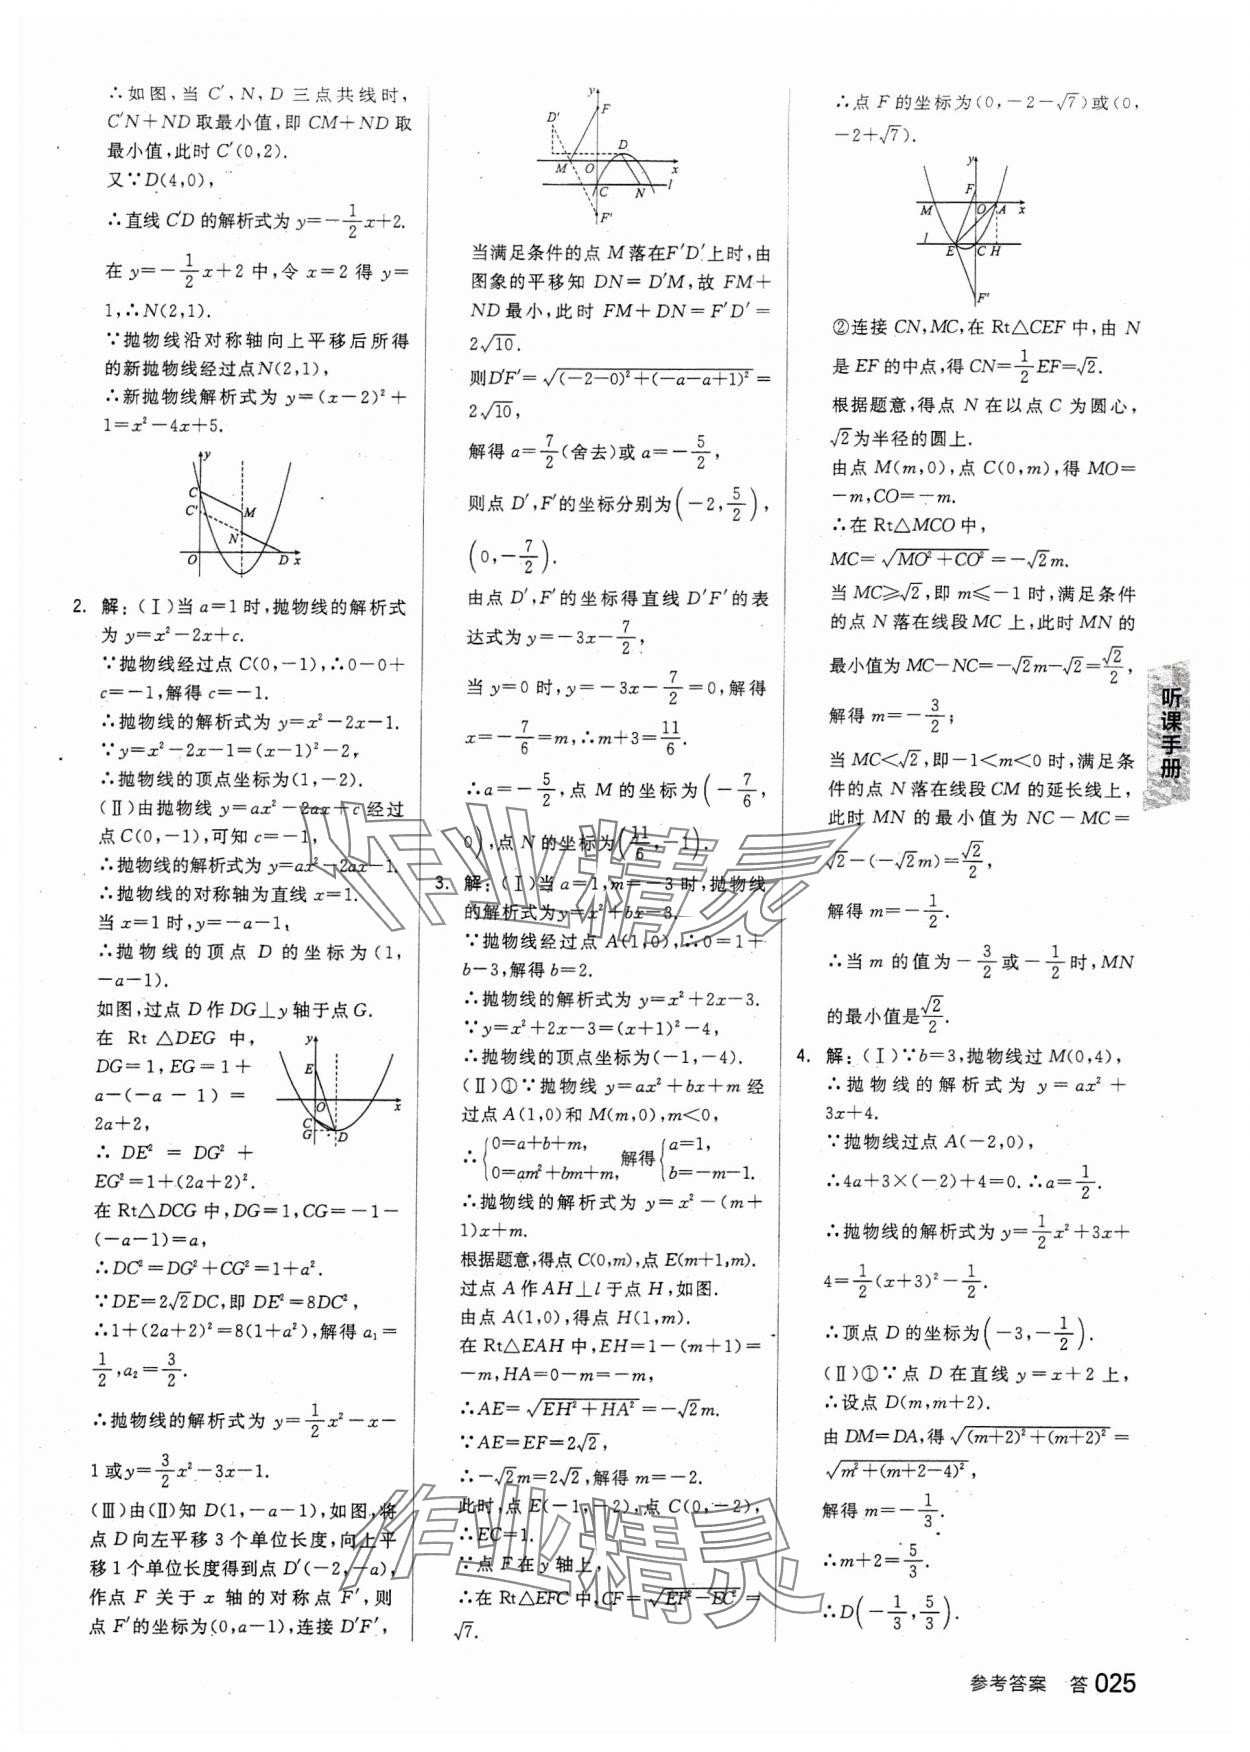 ∴如图,当 C′,N,D 三点共线时,
C′N+ND 取最小值,即 CM+ND 取
最小值,此时 C′(0,2).
又∵D(4,0),
∴直线 C′D 的解析式为 y=-1/2x+2.
在 y=-1/2x+2 中,令 x=2 得 y=
1,∴N(2,1).
∵抛物线沿对称轴向上平移后所得
的新抛物线经过点N(2,1),
∴新抛物线解析式为 y=(x-2)²+
1=x²-4x+5.
y
C
C′
M
N
O
D
x
2. 解:(Ⅰ)当 a=1 时,抛物线的解析式
为 y=x²-2x+c.
∵抛物线经过点 C(0,-1),∴0-0+
c=-1,解得 c=-1.
∴抛物线的解析式为 y=x²-2x-1.
∵y=x²-2x-1=(x-1)²-2,
∴抛物线的顶点坐标为(1,-2).
(Ⅱ)由抛物线 y=ax²-2ax+c 经过
点 C(0,-1),可知 c=-1,
∴抛物线的解析式为 y=ax²-2ax-1.
∴抛物线的对称轴为直线 x=1.
当 x=1 时,y=-a-1,
∴抛物线的顶点 D 的坐标为(1,
-a-1).
如图,过点 D 作 DG⊥y轴于点 G.
在 Rt △DEG 中,
DG=1,EG=1+
a-(-a-1)=
2a+2,
∴ DE² = DG² +
EG²=1+(2a+2)².
y
E
O
x
C
G
D
在 Rt△DCG 中,DG=1,CG=-1-
(-a-1)=a,
∴DC²=DG²+CG²=1+a².
∵DE=2√2DC,即 DE²=8DC²,
∴1+(2a+2)²=8(1+a²),解得 a₁=
1/2,a₂=3/2.
∴抛物线的解析式为 y=1/2x²-x-
1 或 y=3/2x²-3x-1.
(Ⅲ)由(Ⅱ)知 D(1,-a-1),如图,将
点 D 向左平移 3 个单位长度,向上平
移 1 个单位长度得到点 D′(-2,-a),
作点 F 关于 x 轴的对称点 F′,则
点 F′的坐标为(0,a-1),连接 D′F′,
y
F
D′
D
M
O
x
C
N
l
F′
当满足条件的点 M 落在F′D′上时,由
图象的平移知 DN=D′M,故 FM+
ND 最小,此时 FM+DN=F′D′=
2√10.
则D′F′=√(-2-0)²+(-a-a+1)²=
2√10,
解得 a=7/2(舍去)或 a=-5/2,
则点 D′,F′的坐标分别为(-2,5/2),
(0,-7/2).
由点 D′,F′的坐标得直线 D′F′的表
达式为 y=-3x-7/2,
当 y=0 时,y=-3x-7/2=0,解得
x=-7/6=m,∴m+3=11/6.
∴a=-5/2,点 M 的坐标为(-7/6,
0),点 N 的坐标为(11/6,-1).
3. 解:(Ⅰ)当 a=1,m=-3 时,抛物线
的解析式为y=x²+bx-3.
∵抛物线经过点 A(1,0),∴0=1+
b-3,解得 b=2.
∴抛物线的解析式为 y=x²+2x-3.
∵y=x²+2x-3=(x+1)²-4,
∴抛物线的顶点坐标为(-1,-4).
(Ⅱ)①∵抛物线 y=ax²+bx+m 经
过点 A(1,0)和 M(m,0),m<0,
∴{0=a+b+m, 0=am²+bm+m, 解得{a=1, b=-m-1.
∴抛物线的解析式为 y=x²-(m+
1)x+m.
根据题意,得点C(0,m),点 E(m+1,m).
过点 A 作 AH⊥l 于点 H,如图.
由点 A(1,0),得点 H(1,m).
在 Rt△EAH 中,EH=1-(m+1)=
-m,HA=0-m=-m,
∴AE=√EH²+HA²=-√2m.
∵AE=EF=2√2,
∴-√2m=2√2,解得 m=-2.
此时,点 E(-1,-2),点 C(0,-2),
∴EC=1.
∵点 F 在 y 轴上,
∴在 Rt△EFC 中,CF=√EF²-EC²=
√7.
∴点 F 的坐标为(0,-2-√7)或(0,
-2+√7).
y
F
M
O
A
x
l
E
C
H
F′
②连接 CN,MC,在 Rt△CEF 中,由 N
是 EF 的中点,得 CN=1/2EF=√2.
根据题意,得点 N 在以点 C 为圆心,
√2为半径的圆上.
由点 M(m,0),点 C(0,m),得 MO=
-m,CO=-m.
∴在 Rt△MCO 中,
MC=√MO²+CO²=-√2m.
当 MC≥√2,即 m≤-1 时,满足条件
的点 N 落在线段 MC 上,此时 MN 的
最小值为 MC-NC=-√2m-√2=√2/2,
解得 m=-3/2;
当 MC<√2,即-1<m<0 时,满足条
件的点 N 落在线段 CM 的延长线上,
此时 MN 的最小值为 NC-MC=
√2-(-√2m)=√2/2,
解得 m=-1/2.
∴当 m 的值为-3/2或-1/2时,MN
的最小值是√2/2.
4. 解:(Ⅰ)∵b=3,抛物线过 M(0,4),
∴抛物线的解析式为 y=ax²+
3x+4.
∵抛物线过点 A(-2,0),
∴4a+3×(-2)+4=0.∴a=1/2.
∴抛物线的解析式为 y=1/2x²+3x+
4=1/2(x+3)²-1/2.
∴顶点 D 的坐标为(-3,-1/2).
(Ⅱ)①∵点 D 在直线 y=x+2 上,
∴设点 D(m,m+2).
由 DM=DA,得√(m+2)²+(m+2)²=
√m²+(m+2-4)²,
解得 m=-1/3.
∴m+2=5/3.
∴D(-1/3,5/3).
听课手册
作业精灵
作业精灵
参考答案 答 025